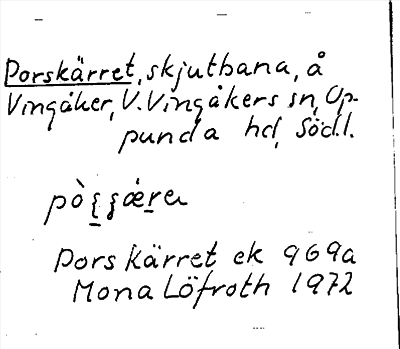 Porskärret, skjutbana, å
Vingåker, V. Vingåkers sn, Op-
punda hd, Södl.
Porskärret ek 969a
Mona Löfroth 1972